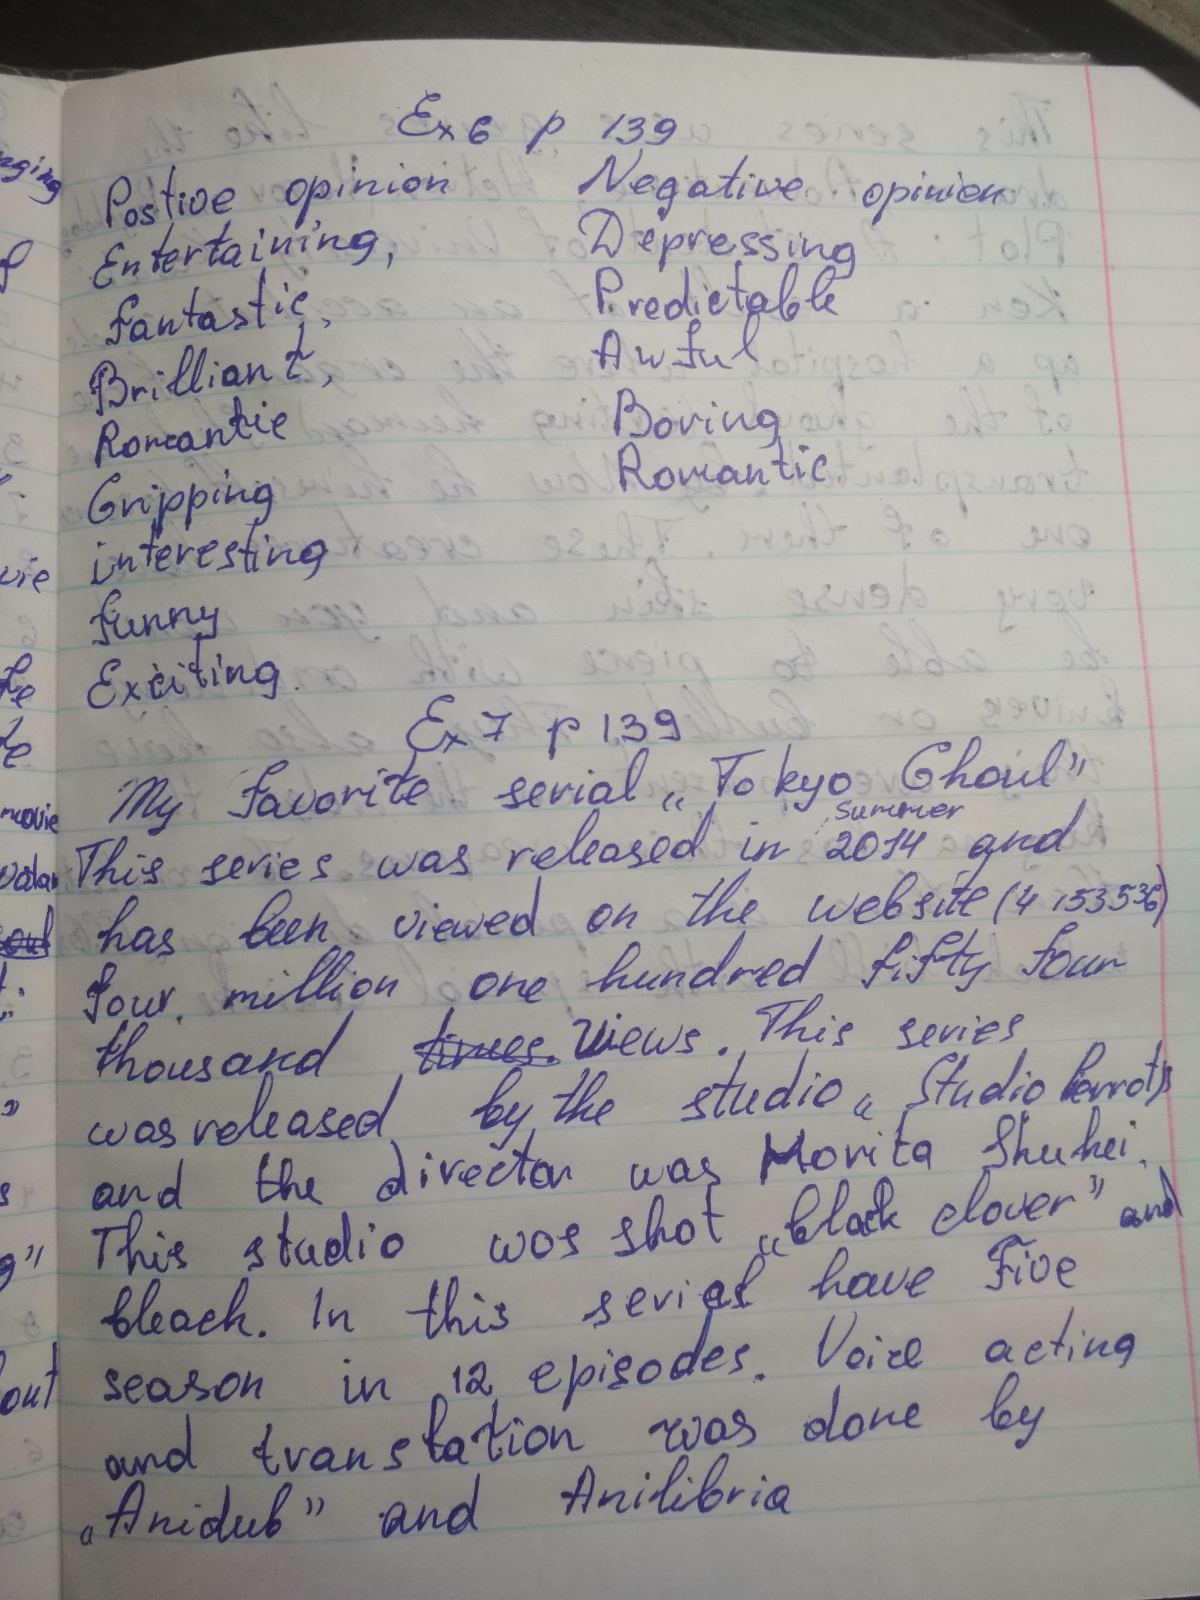 Ex 6 p 139
Postive opinion
Entertaining,
fantastic,
Brilliant,
Romantic
Gripping
interesting
funny
Exciting.
Negative opinion
Depressing
Predictable
Awful
Boring
Romantic
Ex 7 p 139
My favorite serial „Tokyo Ghoul”
summer
This series was released in 2014 and
has been viewed on the website (4 153536)
four million one hundred fifty four
thousand times. views. This series
was released by the studio „Studio Pierrot”
and the director was Morita Shuhei.
This studio was shot „black clover” and
bleach. In this serial have Five
season in 12 episodes. Voice acting
and translation was done by
„Anidub” and Anilibria